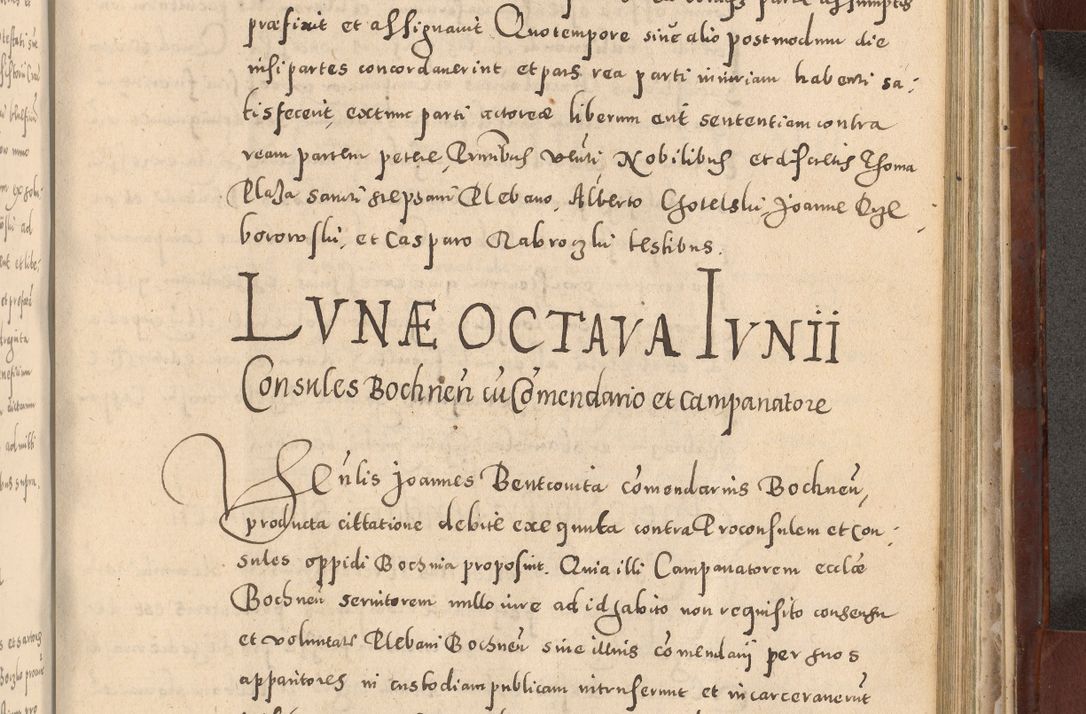 præfixit et assignavit Quo tempore sive alio postmodum die
nisi partes concordaverint, et pars rea parti iniuriam habenti sa-
tisfecerit, extunc parti actoreæ liberum erit sententiam contra
ream partem petere Prntibus Venli Nobilibus et discretis Thoma
Plaza sancti Stephani Plebano, Alberto Chotelski, Joanne
borowski, et Casparo testibus.
LVNÆ OCTAVA IVNII
Consules Bochneñ cũ Cõmendario et Campanatore
Venlis Joannes Bentcovita cõmendarius Bochneñ,
producta cittatione debite exequuta contra Proconsulem et Con-
sules oppidi Bochnia proposuit. Quia illi Campanatorem ecclæ
Bochneñ servitorem nullo iure ad id habito non requisito consensu
et voluntate Plebani Bochneñ sive illius cõmendarij per suos
apparitores in custodiam publicam intruserunt et incarceraverũt